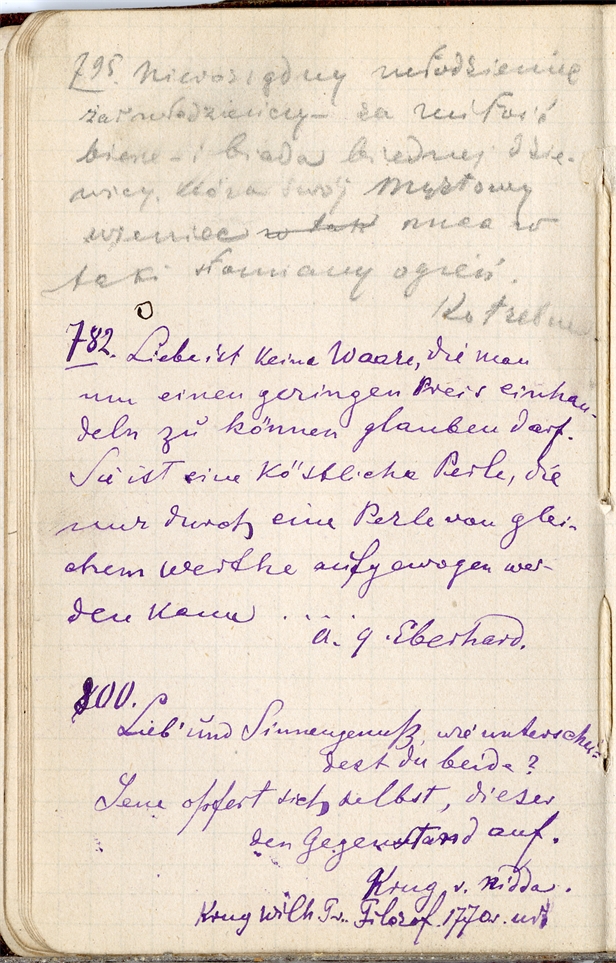 795. Nierozsądny młodzieniec
żar młodzieńczy – za miłość
bierze – i biada biednej dzie-
wicy, która swój myrtowy
wieniec w tak rzuca w
taki słomiany ogień.
Kotzebue
782. Liebe ist keine Waare, die man
um einen geringen Preis einhan-
deln zu können glauben darf.
Sie ist eine köstliche Perle, die
nur durch eine Perle von glei-
chem Werthe aufgewogen wer-
den kann ...
A. g. Eberhard.
800.
Lieb' und Sinnengenuß, wie unterschei-
dest du beide?
Jene opfert sich selbst, dieser
den Gegenstand auf.
Krug v. Nidda.
Krug Wilh. Tr. Filozof. 1770 r. ur.